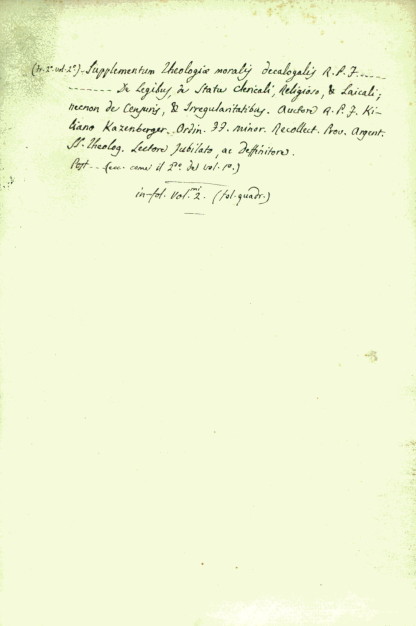 (tr. 2º vol. 2º). Supplementum Theologiæ moralis decalogalis R. P. F. -----
-------- De Legibus, de Statu Clericali, Religioso, & Laicali;
necnon de Censuris, & Irregularitatibus. Auctore R. P. F. Ki-
liano Kazenberger. Ordin. FF. minor. Recollect. Prov. Argent.
SS. Theolog. Lectore Jubilato, ac Deffinitore.
Post -- (ecc. come il 1º del vol. 1º.)
in-fol. vol. mi 2. (fol. quadr.)